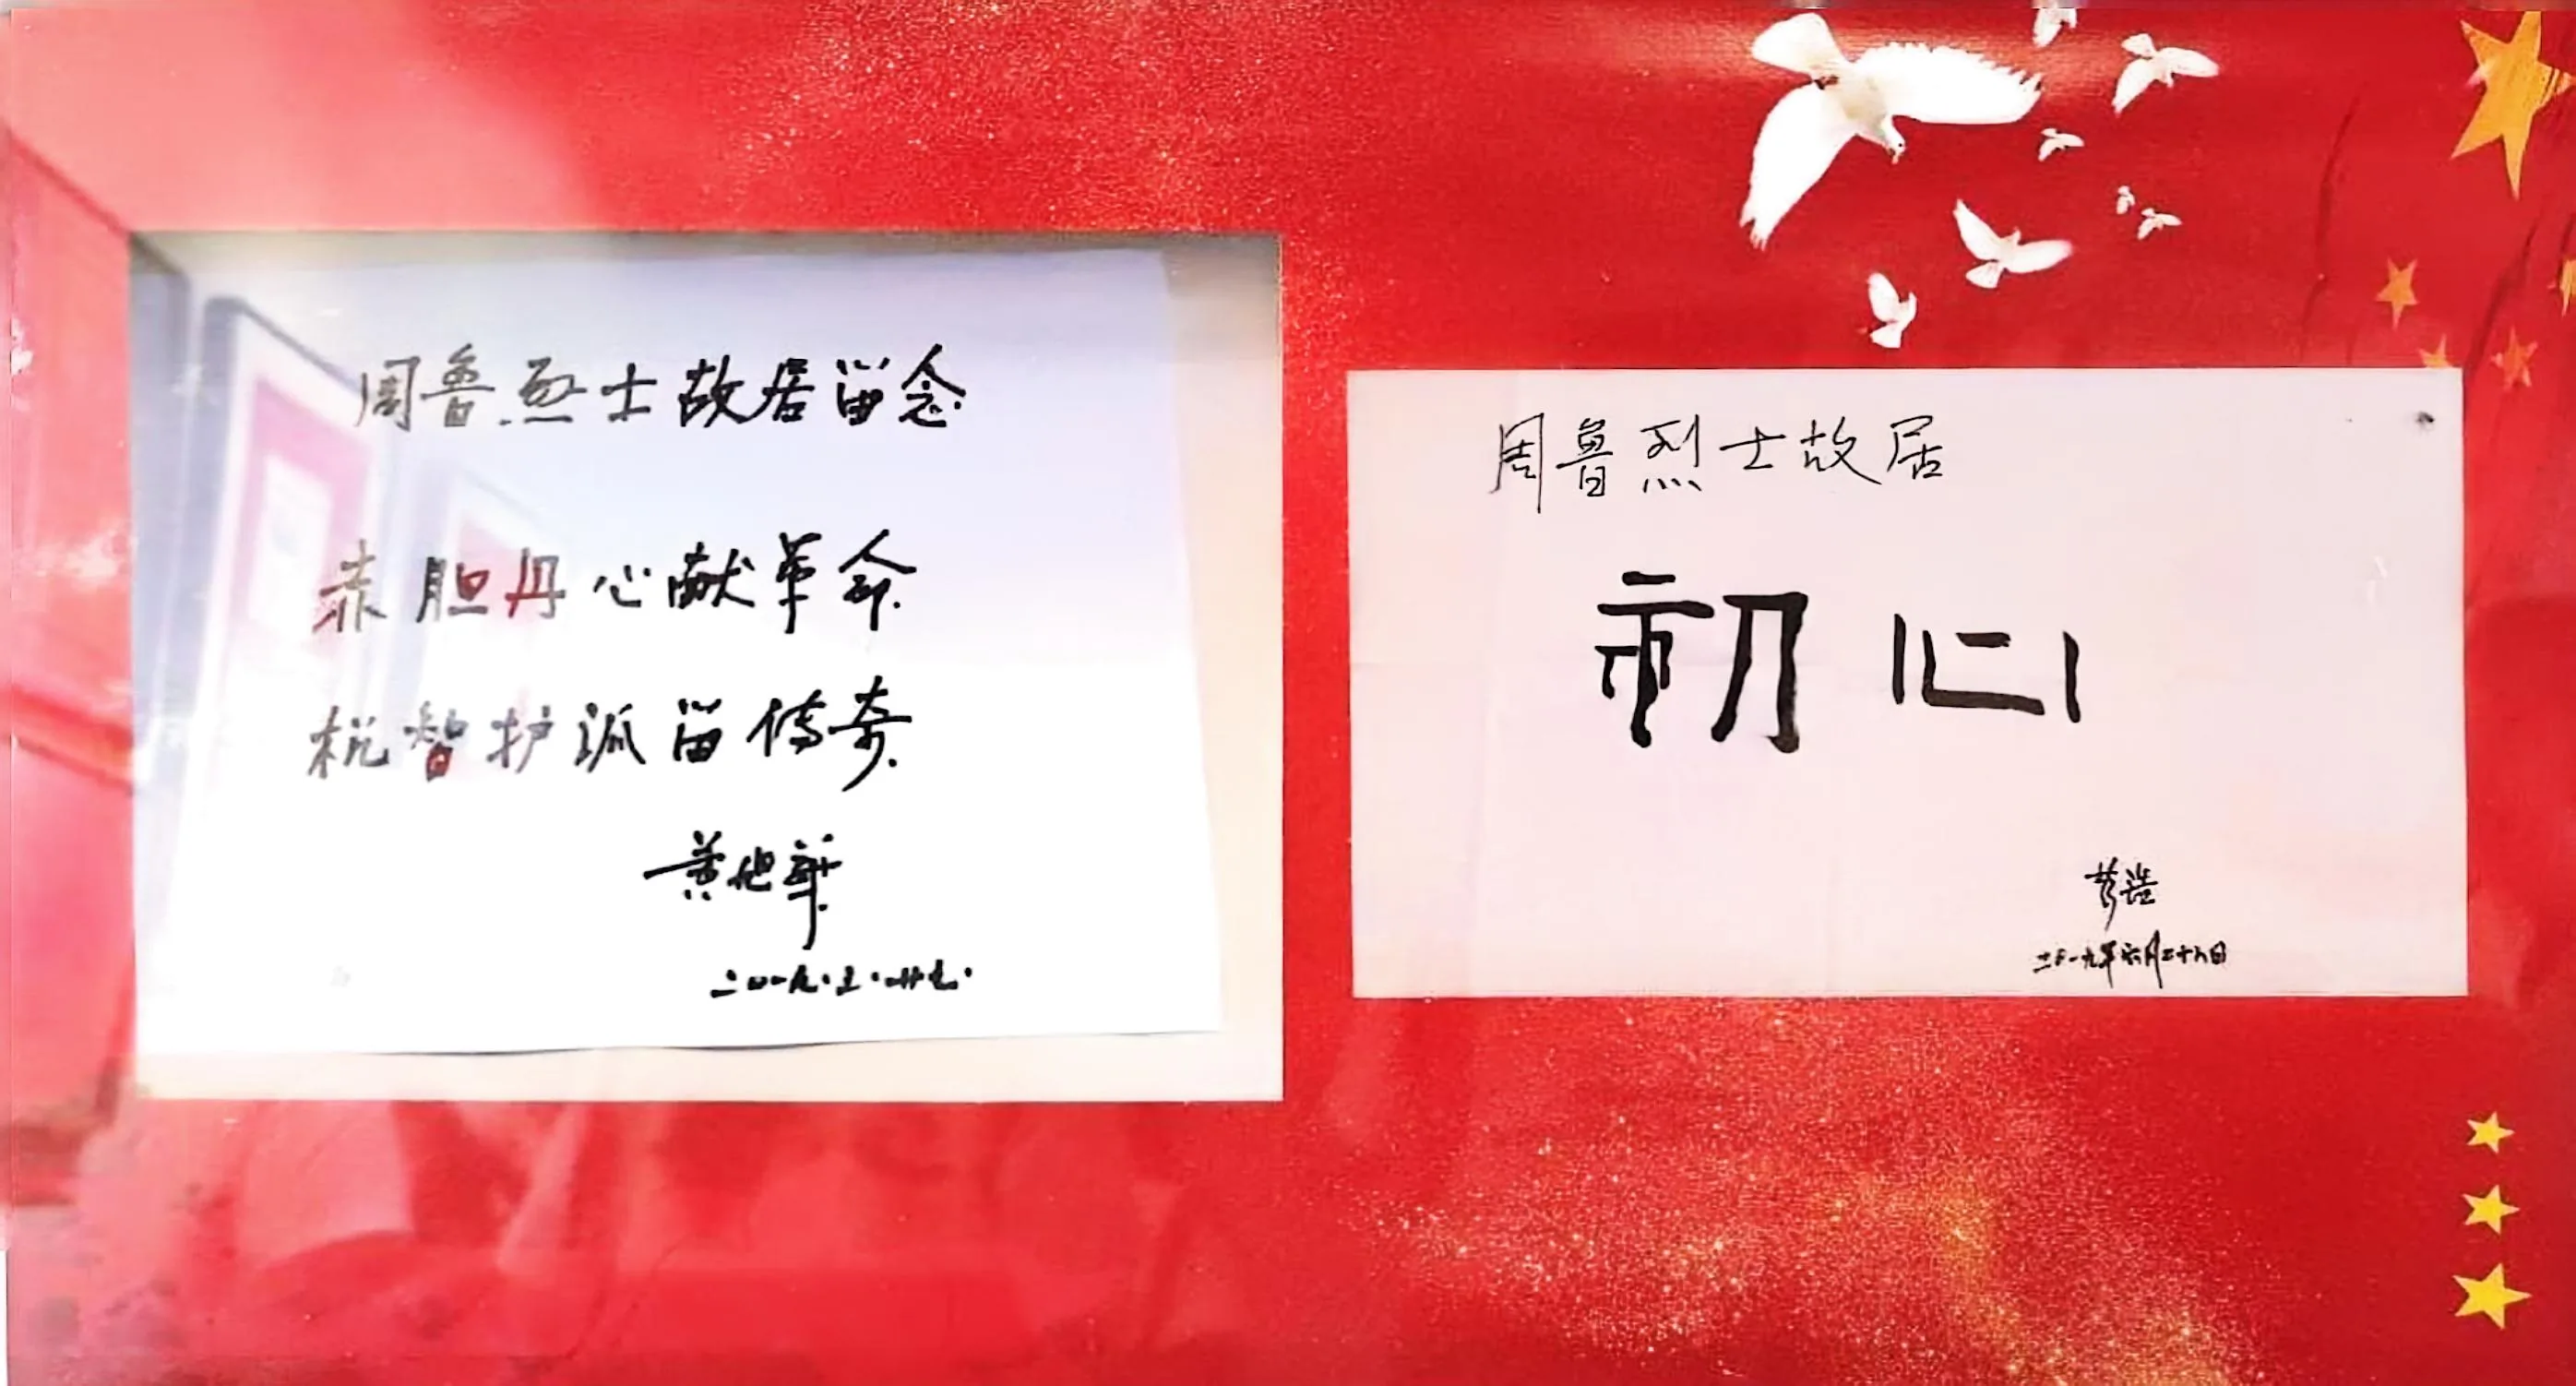 周鲁烈士故居留念
赤胆丹心献革命
机智护孤留传奇
黄旭华
二〇一九·五·廿九·
周鲁烈士故居
初心
二〇一九年六月二十八日